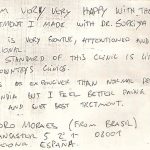 AM WORK VERY HAPPY WITH THE
TMENT I MADE WITH DR.
IS VERY GENTLE, ATTENTIONED AND
IONAL.
STANDARD OF THIS CLINIC IS
CLINICS.
IS EXPENSIVER THAN NORMAL
INDIA BUT I FEEL BETTER PAYING
AND GET BEST TRETMENT.
DRO MORAES (FROM BRASIL)
5 2-1 08001
ONA ESPAÑA.